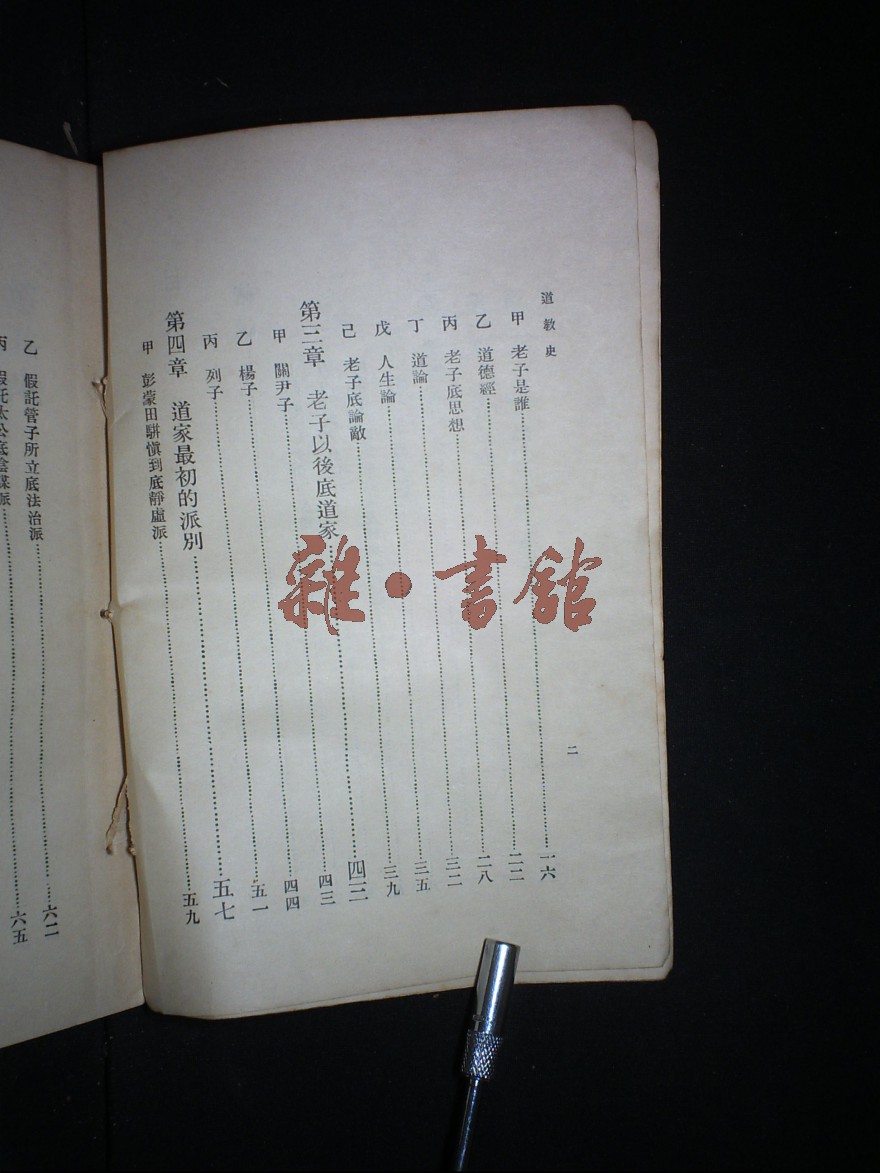 道教史
甲 老子是誰……一六
乙 道德經……二二
丙 老子底思想……二八
丁 道論……三二
戊 人生論……三五
己 老子底論敵……三九
第三章 老子以後底道家……四三
甲 關尹子……四三
乙 楊子……四四
丙 列子……五一
第四章 道家最初的派別……五七
甲 彭蒙田駢愼到底靜虛派……五九
二
乙 假託管子所立底法治派……六二
丙 假託太公底陰謀派……六五
雜·書館